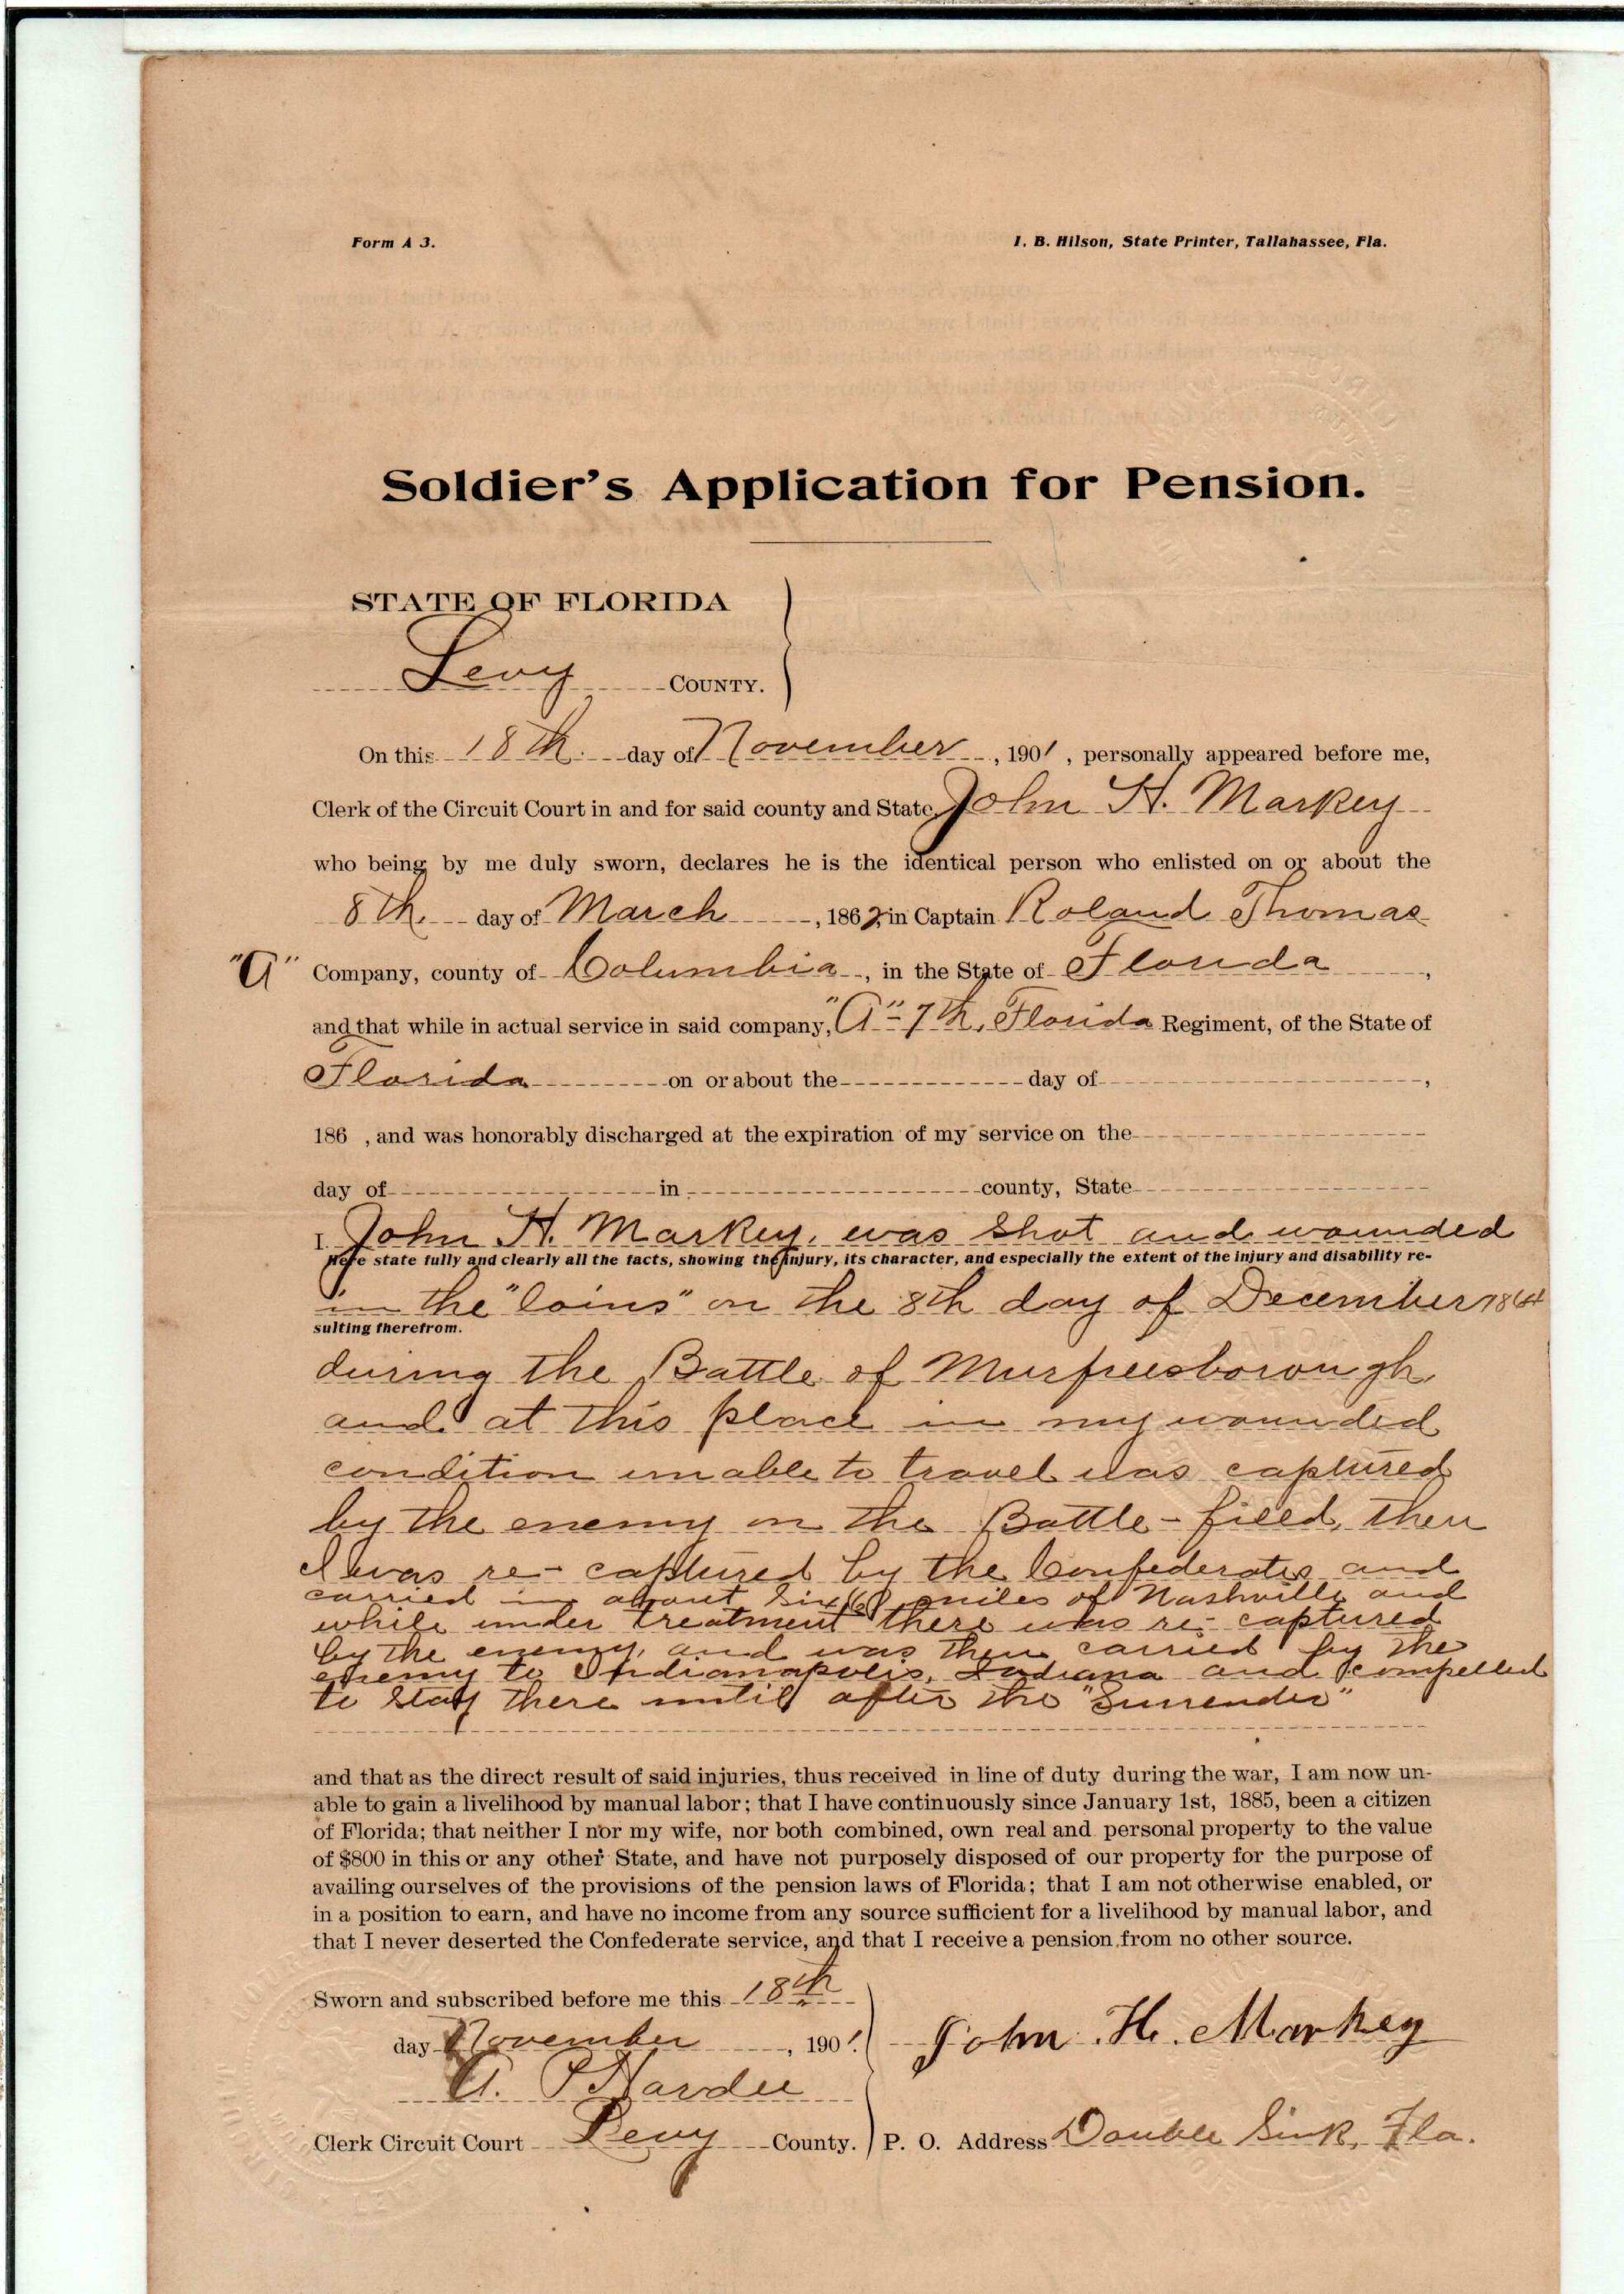 Form A 3.
I. B. Hilson, State Printer, Tallahassee, Fla.
Soldier's Application for Pension.
STATE OF FLORIDA
Levy COUNTY.
On this 18th day of November, 1901, personally appeared before me,
Clerk of the Circuit Court in and for said county and State, John H. Markey
who being by me duly sworn, declares he is the identical person who enlisted on or about the
8th. day of March, 1862, in Captain Roland Thomas
"A" Company, county of Columbia, in the State of Florida,
and that while in actual service in said company, "A" - 7th, Florida Regiment, of the State of
Florida on or about the day of ,
186 , and was honorably discharged at the expiration of my service on the
day of in county, State
I. John H. Markey, was shot and wounded
Here state fully and clearly all the facts, showing the injury, its character, and especially the extent of the injury and disability re-
in the "loins" on the 8th day of December 1864
sulting therefrom.
during the Battle of Murfreesborough
and at this place in my wounded
condition unable to travel was captured
by the enemy on the Battle-field, then
I was re-captured by the Confederates and
carried in about six (6) miles of Nashville and
while under treatment there was re-captured
by the enemy, and was then carried by the
enemy to Indianapolis, Indiana and compelled
to stay there until after the "Surrender"
and that as the direct result of said injuries, thus received in line of duty during the war, I am now un-
able to gain a livelihood by manual labor; that I have continuously since January 1st, 1885, been a citizen
of Florida; that neither I nor my wife, nor both combined, own real and personal property to the value
of $800 in this or any other State, and have not purposely disposed of our property for the purpose of
availing ourselves of the provisions of the pension laws of Florida; that I am not otherwise enabled, or
in a position to earn, and have no income from any source sufficient for a livelihood by manual labor, and
that I never deserted the Confederate service, and that I receive a pension from no other source.
Sworn and subscribed before me this 18th
day November, 1901.
John H. Markey
A. P. Hardee
Clerk Circuit Court Levy County.
P. O. Address Double Sink, Fla.